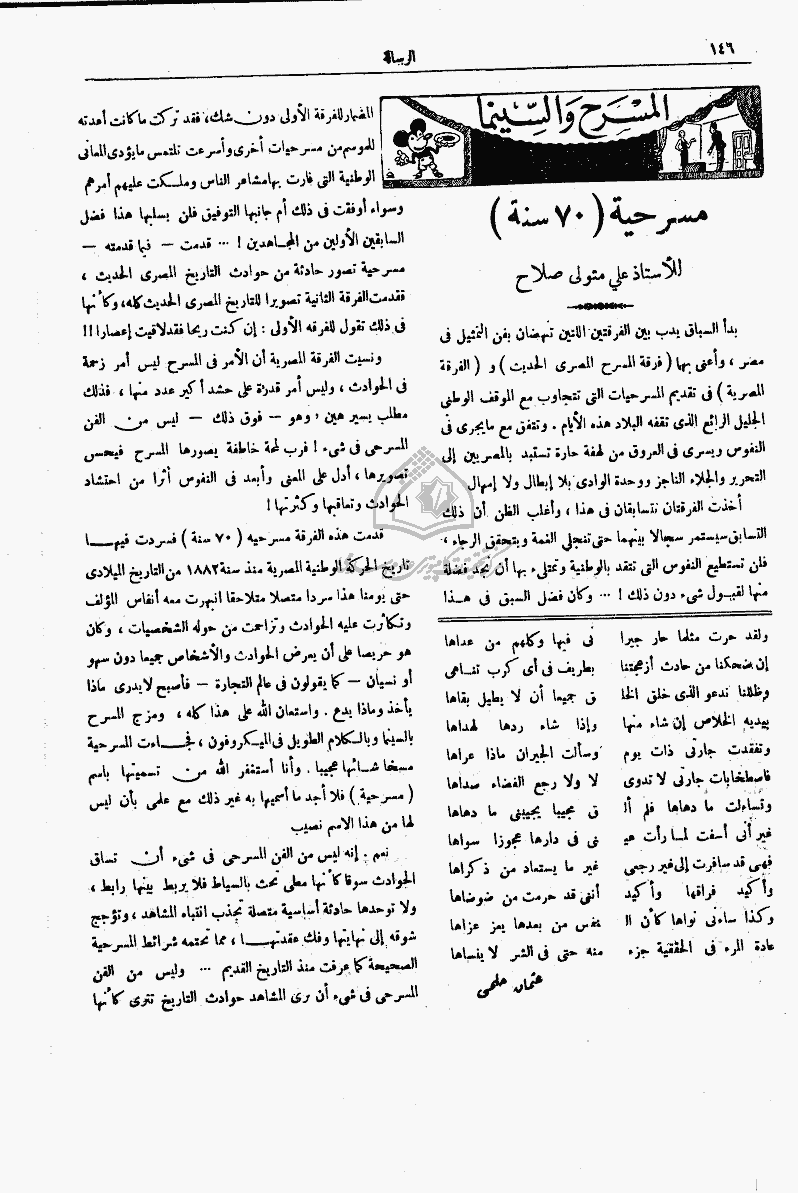 ١٤٦
الرسالة
المسرح والسينما
مسرحية ( ٧٠ سنة )
للأستاذ علي متولى صلاح
بدأ السباق يدب بين الفرقتين اللتين تنهضان بفن التمثيل فى
مصر ، وأعنى بهما ( فرقة المسرح المصرى الحديث ) و ( الفرقة
المصرية ) فى تقديم المسرحيات التى تتجاوب مع الموقف الوطنى
الجليل الرائع الذى تقفه البلاد هذه الأيام . وتتفق مع ما يجرى فى
النفوس ويسرى فى العروق من لهفة حارة تستبد بالمصريين إلى
التحرير والجلاء الناجز ووحدة الوادى بلا إبطال ولا إمهال
أخذت الفرقتان تتسابقان فى هذا ، وأغلب الظن أن ذلك
التسابق سيستمر سجالا بينهما حتى تنجلي الغمة ويتحقق الرجاء ،
فلن تستطيع النفوس التى تتقد بالوطنية وتمتلىء بها أن تجد فضلة
منها لقبول شىء دون ذلك ! ... وكان فضل السبق فى هذا
المضمار للفرقة الأولى دون شك ، فقد تركت ما كانت أعدته
للموسم من مسرحيات أخرى وأسرعت تلتمس ما يؤدى المعانى
الوطنية التى فارت بها مشاعر الناس وملكت عليهم أمرهم
وسواء أوفقت فى ذلك أم جانبها التوفيق فلن يسلبها هذا فضل
السابقين الأولين من المجاهدين ! ... قدمت — فيما قدمته —
مسرحية تصور حادثة من حوادث التاريخ المصرى الحديث ،
فقدمت الفرقة الثانية تصويرا للتاريخ المصرى الحديث كله ، وكأنها
فى ذلك تقول للفرقه الأولى : إن كنت ريحا فقد لاقيت إعصارا !!!
ونسيت الفرقة المصرية أن الأمر فى المسرح ليس أمر زحمة
فى الحوادث ، وليس أمر قدرة على حشد أكبر عدد منها ، فذلك
مطلب يسير هين ، وهو — فوق ذلك — ليس من الفن
المسرحى فى شىء ! فرب لمحة خاطفة يصورها المسرح فيحسن
تصويرها ، أدل على المعنى وأبعد فى النفوس أثرا من احتشاد
الحوادث وتعاقبها وكثرتها !
قدمت هذه الفرقة مسرحيه ( ٧٠ سنة ) فسردت فيها
تاريخ الحركة الوطنية المصرية منذ سنة ١٨٨٢ من التاريخ الميلادى
حتى يومنا هذا سردا متصلا متلاحقا انبهرت معه أنفاس المؤلف
وتكاثرت عليه الحوادث وتزاحمت من حوله الشخصيات ، وكان
هو حريصا على أن يعرض الحوادث والأشخاص جميعا دون سهو
أو نسيان — كما يقولون فى عالم التجارة — فأصبح لا يدرى ماذا
يأخذ وماذا يدع . واستعان الله على هذا كله ، ومزج المسرح
بالسينما وبالكلام الطويل فى الميكروفون ، فجاءت المسرحية
مسخا شائها عجيبا . وأنا أستغفر الله من تسميتها باسم
( مسرحية ) فلا أجد ما أسميها به غير ذلك مع علمى بأن ليس
لها من هذا الاسم نصيب
نعم . إنه ليس من الفن المسرحى فى شىء أن تساق
الحوادث سوقا كأنها مطى تحث بالسياط فلا يربط بينها رابط ،
ولا توحدها حادثة أساسية متصلة تجذب انتباه المشاهد ، وتؤجج
شوقه إلى نهايتها وفك عقدتها ، مما تحتمه شرائط المسرحية
الصحيحة كما عرفت منذ التاريخ القديم ... وليس من الفن
المسرحى فى شىء أن يرى المشاهد حوادث التاريخ تترى كأنها
ولقد حرت مثلما حار جيرا نى فيها وكلهم من عداها
إن يضحكنا من حادث أزعجتنا بطريف فى أى كرب تناهى
وظللنا ندعو الذى خلق الخلـ ق جميعا أن لا يطيل بقاها
بيديه الخلاص إن شاء منها وإذا شاء ردها لهداها
وتفقدت جارتى ذات يوم وسألت الجيران ماذا عراها
فاصطخابات جارتى لا تدوى لا ولا رجع الفضاء صداها
وتساءلت ما دهاها فلم ألـ ق مجيبا يجيبنى ما دهاها
غير أنى أسفت لما رأت عيـ نى فى دارها عجوزا سواها
فهى قد سافرت إلى غير رجعى غير ما يستعاد من ذكراها
وأكيد فراقها وأكيد أننى قد حرمت من ضوضاها
وكذا ساءنى نواها كأن الـ نفس من بعدها يعز عزاها
عادة المرء فى الحقيقية جزء منه حتى فى الشر لا ينساها
عثمان حلمى